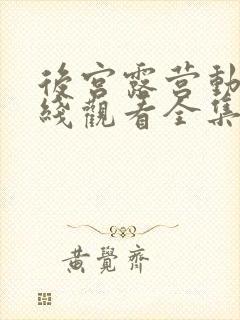 後宮露营動
綫觀看全集
黄覺齊